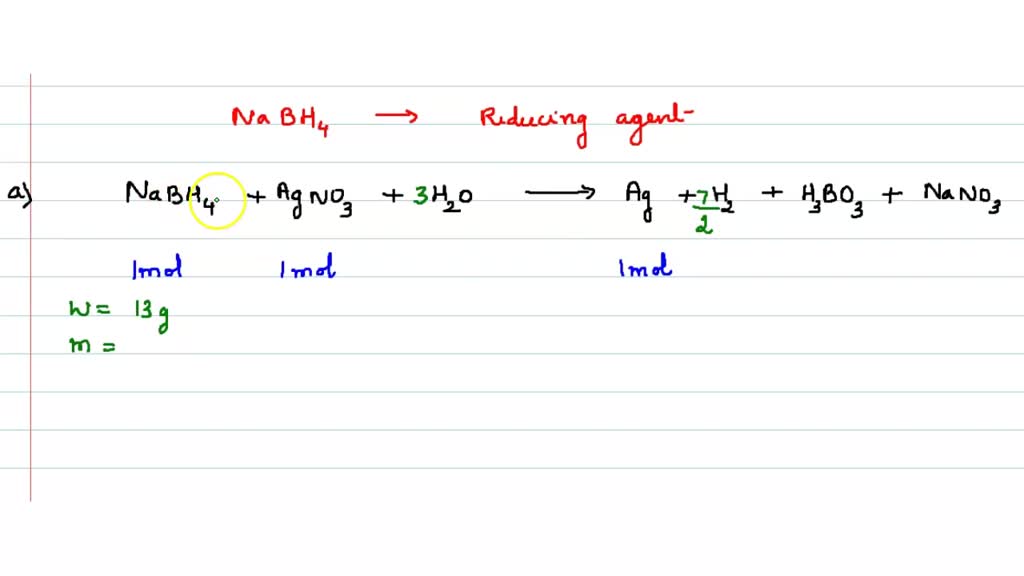 NaBH₄ → Reducing agent
a) NaBH₄ + AgNO₃ + 3H₂O → Ag + 7/2 H₂ + H₃BO₃ + NaNO₃
1mol 1mol 1mol
W = 13g
m =